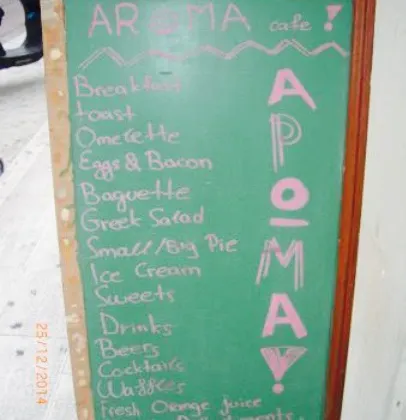 AROMA cafe!
Breakfast
toast
Omelette
Eggs & Bacon
Baguette
Greek Salad
Small/Big Pie
Ice Cream
Sweets
Drinks
Beers
Cocktails
Waffles
Fresh Orange juice
ΑΡΟΜΑ!
25/12/2014